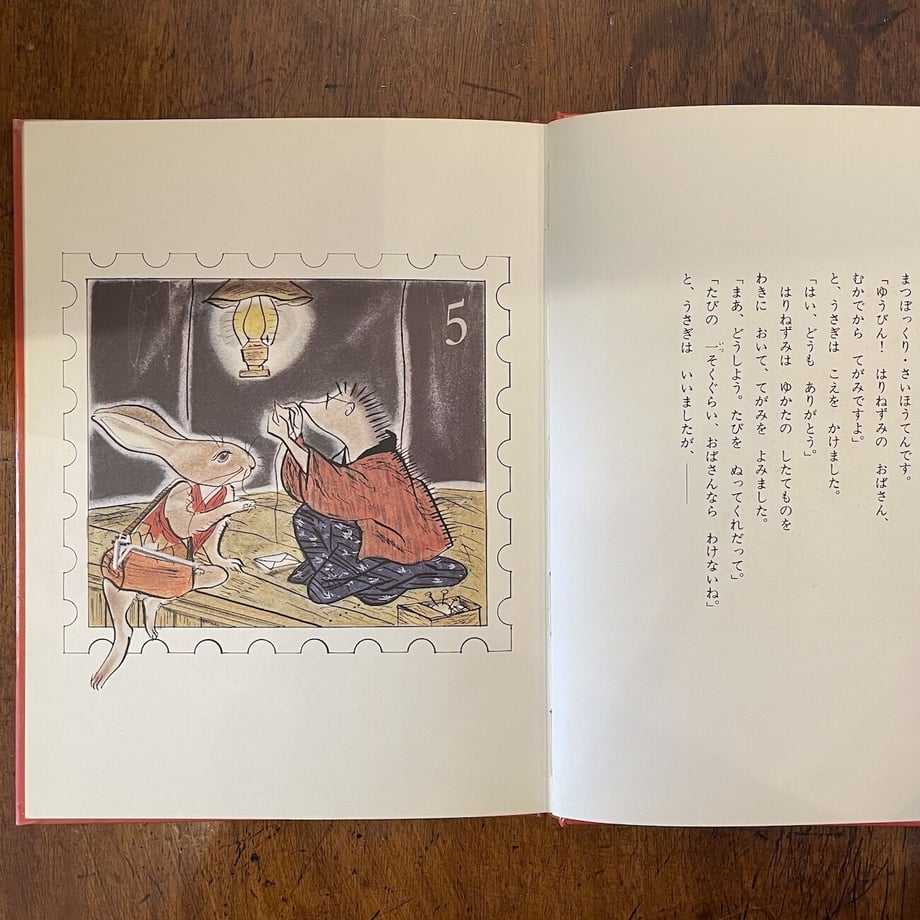 5
まつぼっくり・さいほうてんです。
「ゆうびん! はりねずみの おばさん、
むかでから てがみですよ。」
と、うさぎは こえを かけました。
「はい、どうも ありがとう。」
はりねずみは ゆかたの したてものを
わきに おいて、てがみを よみました。
「まあ、どうしよう。たびを ぬってくれだって。」
「たびの 一そくぐらい、おばさんなら わけないね。」
と、うさぎは いいましたが、――